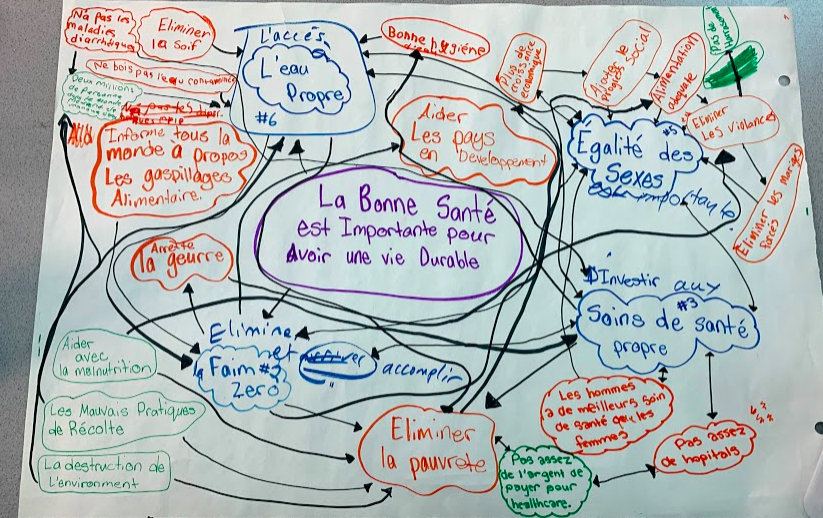 N'a pas les
maladies
diarrhétique
Eliminer
la Soif
Ne bois pas l'equ contaminée
Deux millions
de personne
L'accès
L'eau
Propre
#6
Bonne hygiène
Plus de
croissance
economique
Ajouter le
progrès social
Alimentation
adequate
Pas de
Eliminer
Les violances
Eliminer les mariages
forcés
Informe tous la
monde à propos
Les gaspillages
Alimentaire.
Aider
Les pays
en Developpement
Égalité des
#5
Sexes
est important
La Bonne Santé
est Importante pour
Avoir une vie Durable
Arrête
la geurre
$Investir aux
#3
Soins de santé
propre
Elimine
et
accomplir
la Faim #2
Zero
Aider
avec
la malnutrition
Les Mauvais Pratiques
de Récolte
La destruction de
L'environment
Eliminer
la pauvrete
Les hommes
a de meilleurs soin
de santé que les
femmes
Pas assez
de hopitals
Pas assez
de l'argent de
payer pour
healthcare.